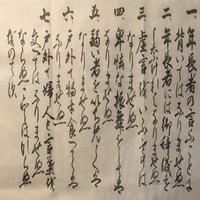 一、年長者の言ふことに
背いてはなりませぬ
二、年長者には御辞儀を
しなければなりませぬ
三、虚言を言ふ事は
なりませぬ
四、卑怯な振舞をしては
なりませぬ
五、弱者をいぢめては
なりませぬ
六、戸外で物を食べては
なりませぬ
七、戸外で婦人と言葉を
交へてはなりませぬ
ならぬことはならぬ
ものです